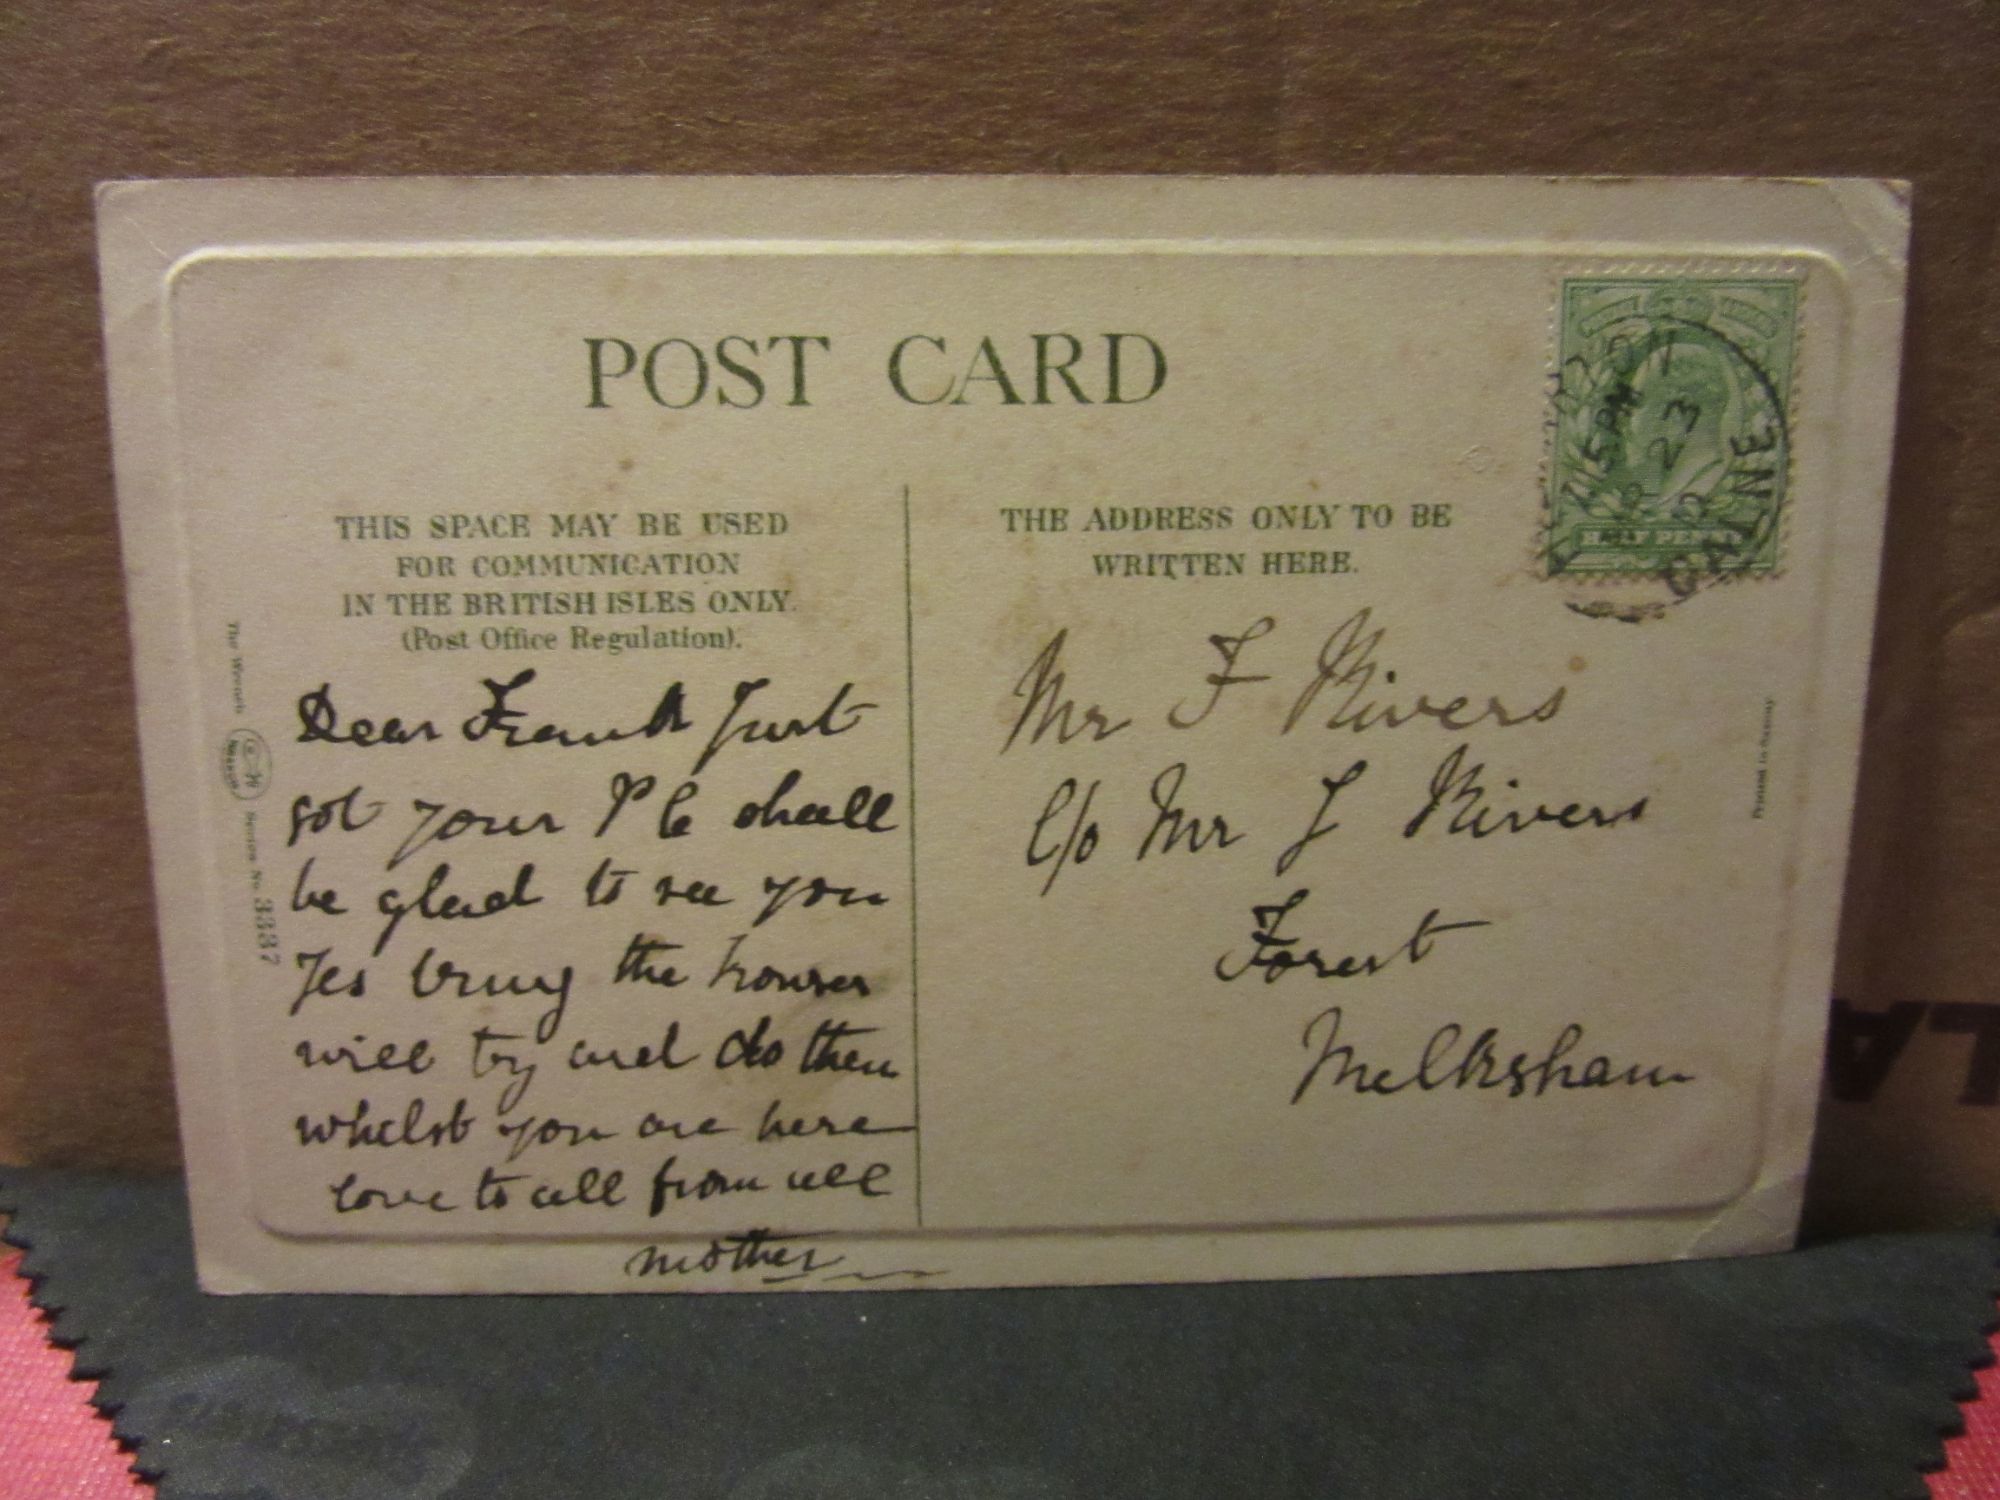 POST CARD
THIS SPACE MAY BE USED
FOR COMMUNICATION
IN THE BRITISH ISLES ONLY.
(Post Office Regulation).
THE ADDRESS ONLY TO BE
WRITTEN HERE.
HALF PENNY
5PM
23
CALNE
The Wrench
Series No. 3337
Dear Frank Just
got your P C shall
be glad to see you
Yes bring the trouser
will try and do them
whilst you are here
love to all from all
mother
Mr F Rivers
C/o Mr J Rivers
Forest
Melksham